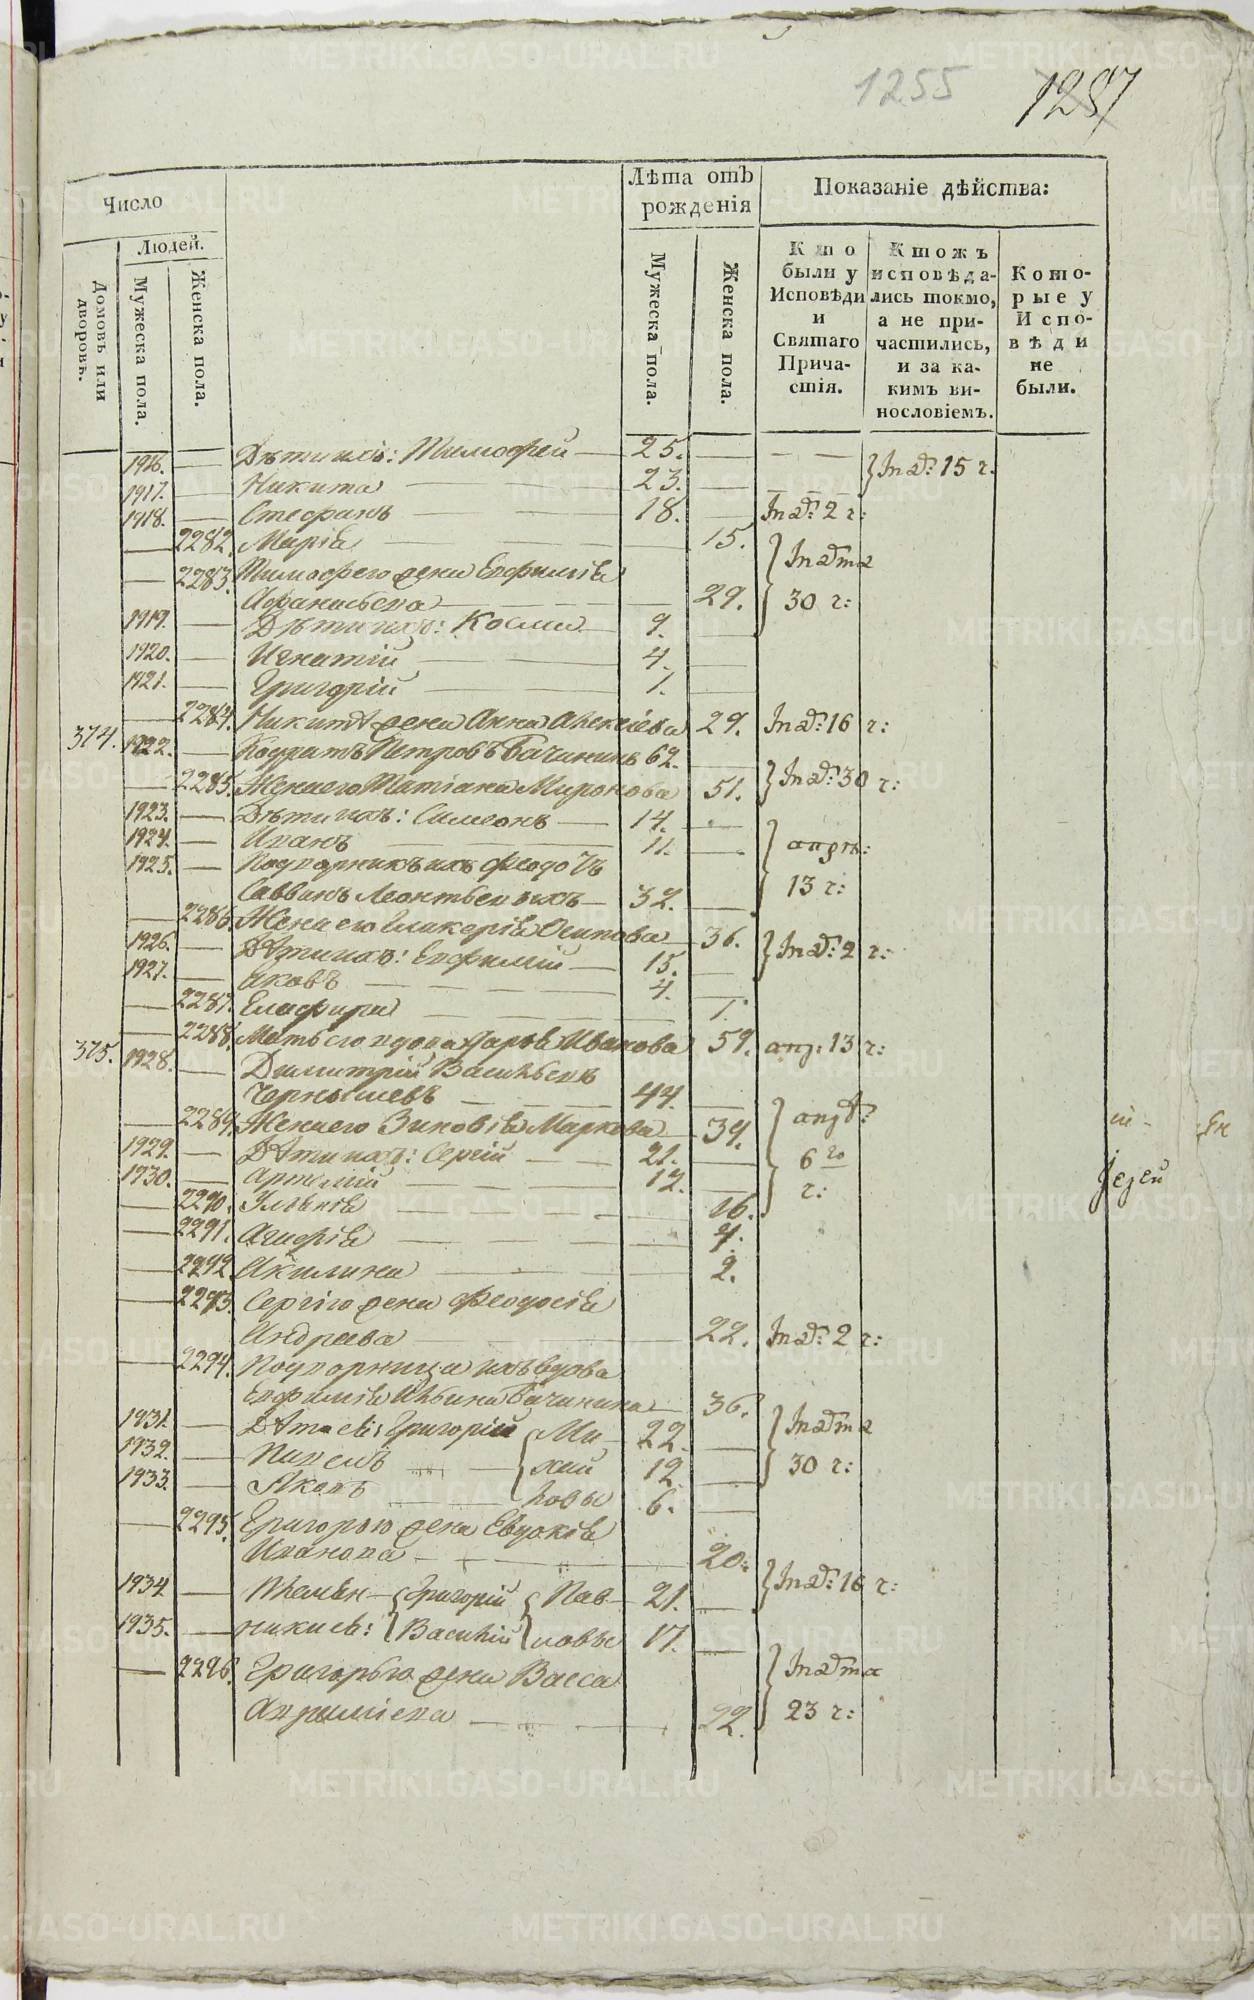 1255 1287
Число
Лѣта отъ рожденія
Показаніе дѣйства:
Людей.
Домовъ или дворовъ.
Мужеска пола.
Женска пола.
Мужеска пола.
Женска пола.
Кто были у Исповѣди и Святаго Причастія.
Ктожъ исповѣдались токмо, а не причастились, и за какимъ винословіемъ.
Которые у Исповѣди не были.
1916. Дѣти ихъ: Тимофей 25.
1917. Никита 23. 15 г.
1918. Стефанъ 18. 2 г:
2282. Марія 15.
2283. Тимофея жена Евфимія
Афанасьева 29. 30 г:
1919. Дѣти ихъ: Косма 9.
1920. Игнатій 4.
1921. Григорій 1.
2284. Никиты жена Анна Алексіева 29. 16 г:
374. 1922. Петровъ Бачининъ 62.
2285. Жена его Татіана Миронова 51. 30 г:
1923. Дѣти ихъ: Симеонъ 14.
1924. Иванъ 11.
1925. Подворникъ ихъ
Леонтьевыхъ 32. 13 г:
2286. Жена его Гликерія Осипова 36.
1926. Дѣти ихъ: Евфимій 15. 2 г:
1927. Яковъ 4.
2287. Глафира 1.
2288. Мать его вдова Дарья Иванова 59. 13 г:
375. 1928. Димитрій Васильевъ
Чернышевъ 44.
2289. Жена его Зиновія Маркова 39.
1929. Дѣти ихъ: Сергій 21. 6 го
1930. Артемій 12. г:
2290. Ульянія 16.
2291. Агафія 4.
2292. Акилина 2.
2293. Сергія жена Феодосія
Андреева 22. 2 г:
2294. Подворница ихъ вдова
Евфимія Ильина Бачинина 36.
1931. Дѣти ея: Григорій Ми- 22.
1932. Павелъ хай 12 30 г:
1933. Яковъ ловы 6.
2295. Григорья жена Евдокія
Иванова 20.
1934 Племян- Григорій Пав- 21. 16 г:
1935. ники ея: Василій ловы 17.
2296. Григорья жена Васса
22. 23 г: